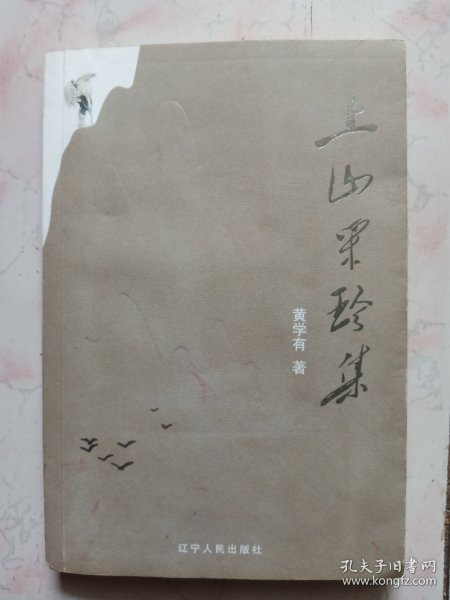 上山采珍集
黄学有 著
辽宁人民出版社
孔夫子旧书网
www.kongfz.com